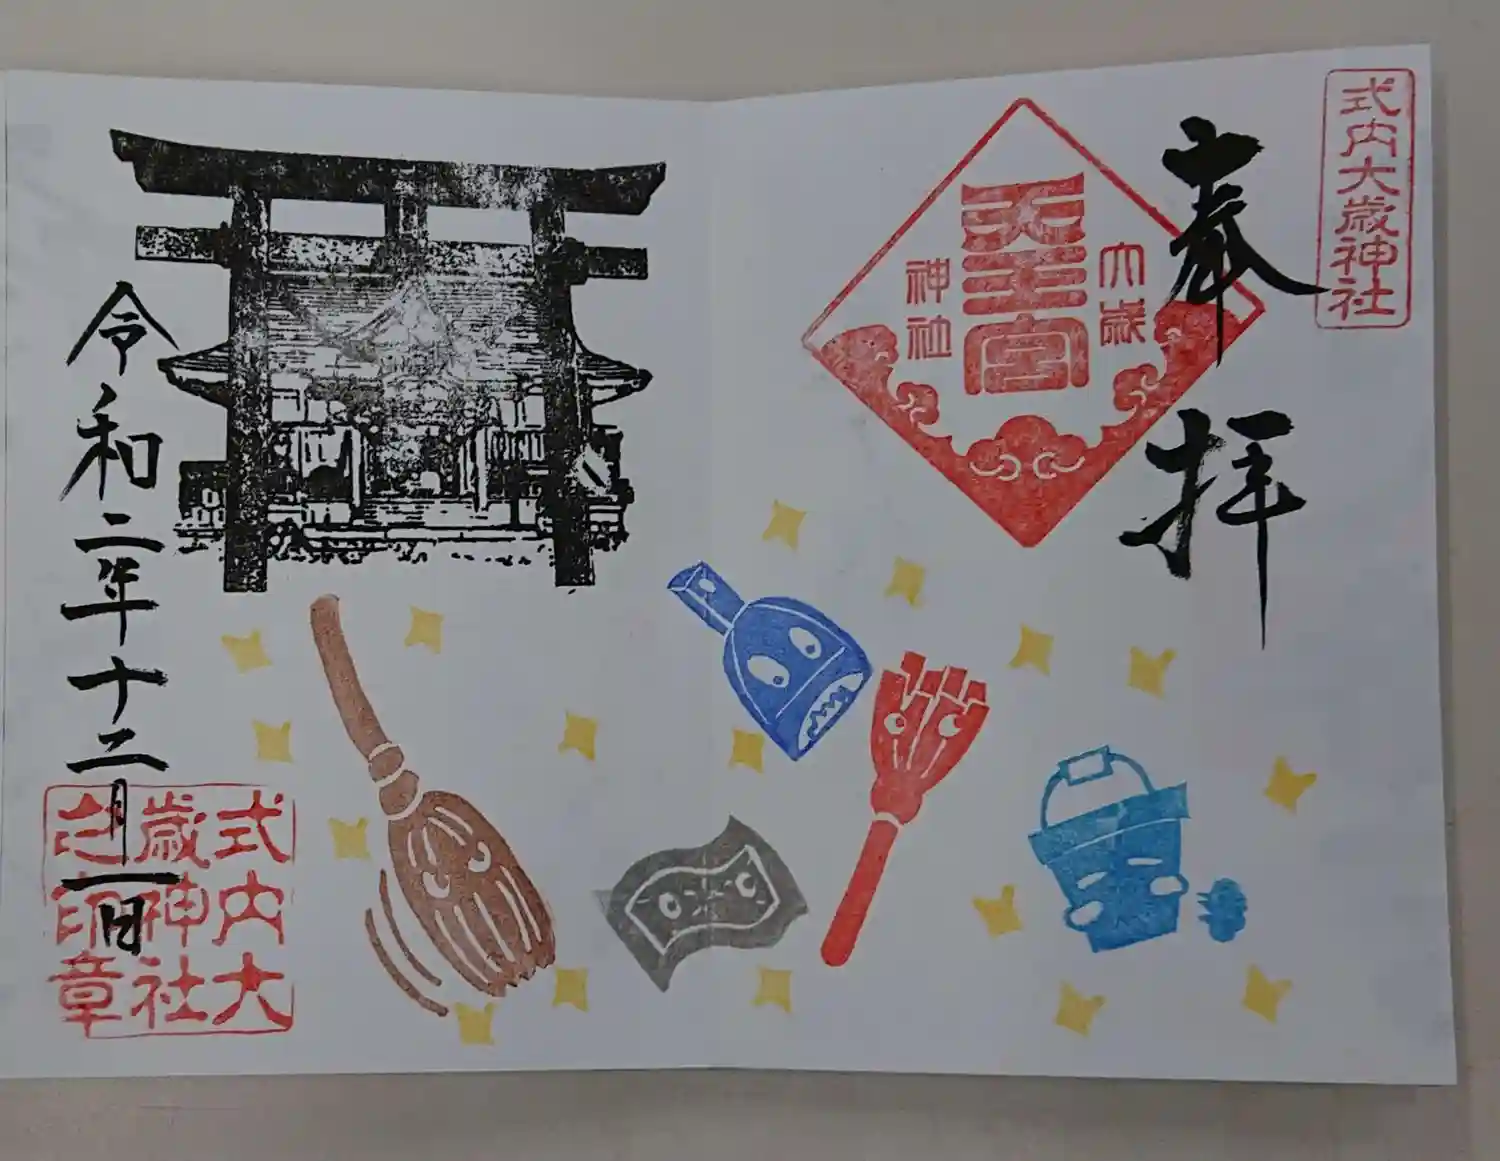 式内大歳神社
奉拝
大歳
天王宮
神社
令和二年十二月一日
式内大
歳神社
之印章